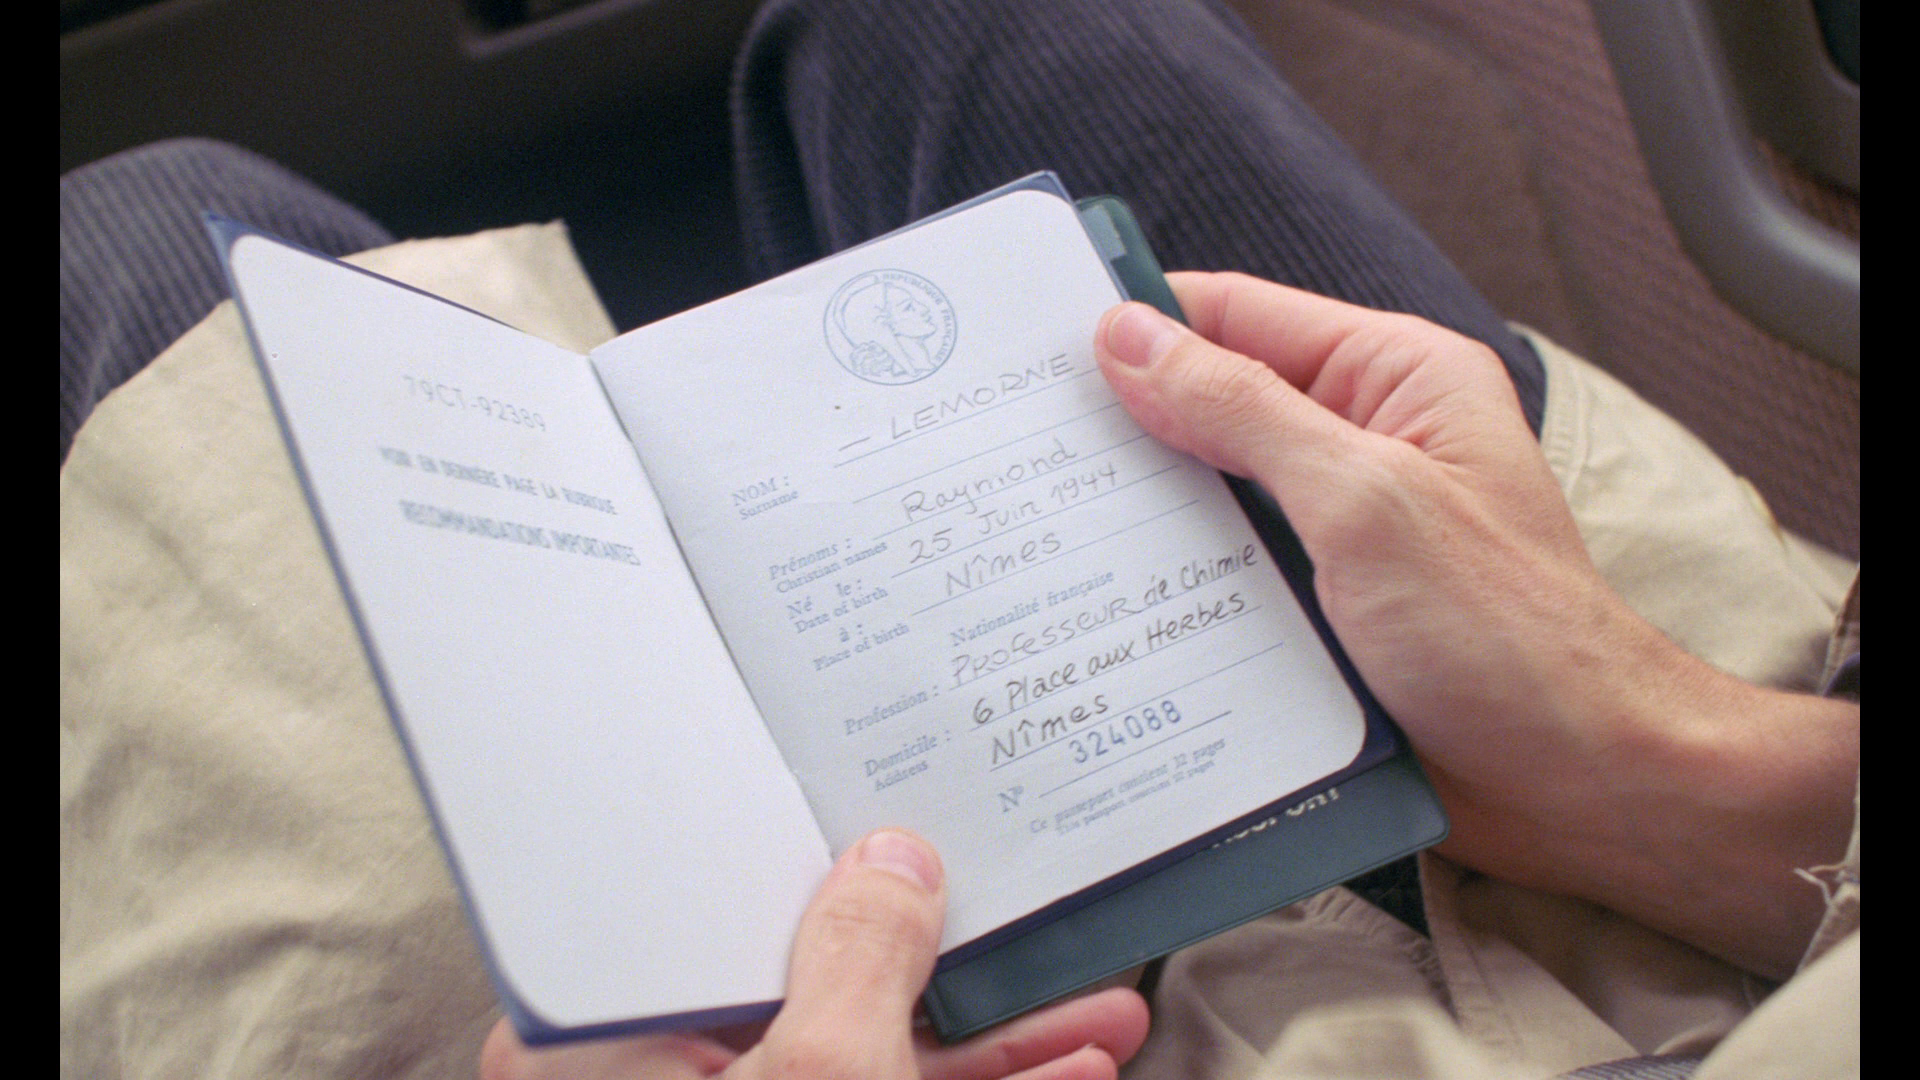 79CT-92389
VOIR EN DERNIÈRE PAGE LA RUBRIQUE
RECOMMANDATIONS IMPORTANTES
REPUBLIQUE FRANÇAISE
— LEMORNE
NOM :
Surname
Raymond
Prénoms :
Christian names
25 Juin 1944
Né le :
Date of birth
Nîmes
à :
Place of birth
Nationalité française
Professeur de Chimie
Profession :
6 Place aux Herbes
Domicile :
Address
Nîmes
324088
N°
Ce passeport contient 32 pages
This passport contains 32 pages